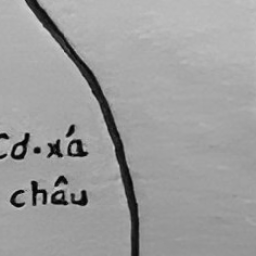 Cd.xá
châu